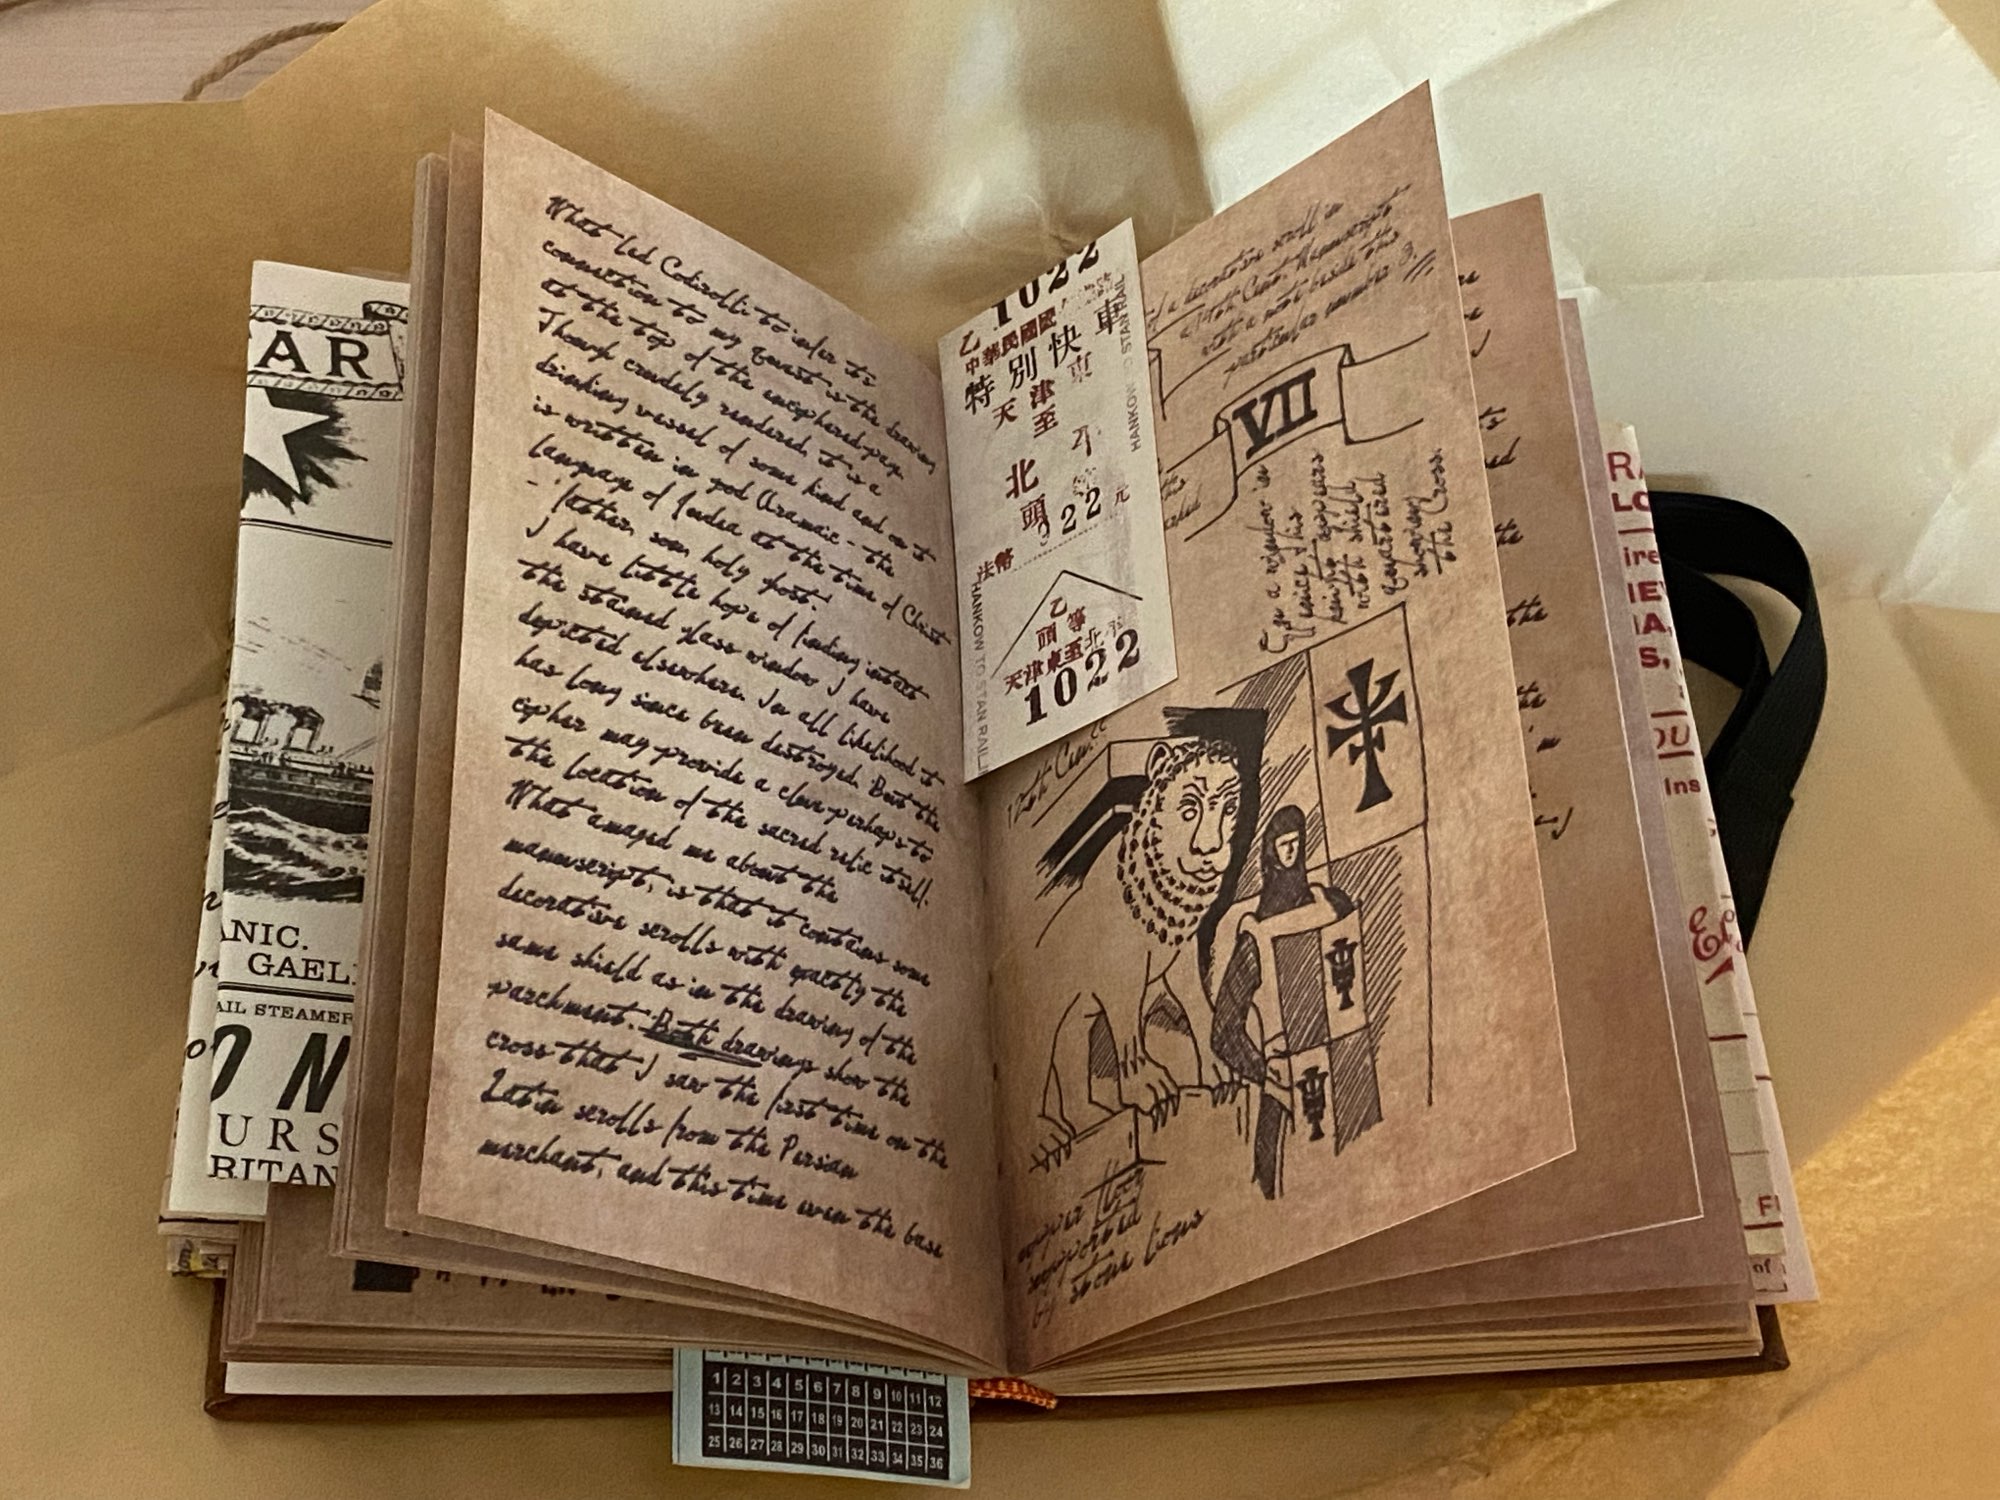 AR
ANIC.
GAEL
AIL STEAMER
O N
URS
RITAN
What led Codirolli to infer its
connection to my quest is the drawing
at the top of the enciphered page.
Though crudely rendered, it is a
drinking vessel of some kind and on it
is written in god Aramaic - the
language of Judea at the time of Christ
- 'father, son, holy ghost.'
I have little hope of finding intact
the stained glass window I have
depicted elsewhere. In all likelihood it
has long since been destroyed. But the
cipher may provide a clue perhaps to
the location of the sacred relic itself.
What amazed me about the
manuscript, is that it contains some
decorative scrolls with exactly the
same shield as in the drawing of the
parchment. Both drawings show the
cross that I saw the first time on the
Latin scrolls from the Persian
merchant, and this time even the base
1022
乙
中華民國國
特別快車
天津 東
至
北
頭
922 元
法幣
乙
頭等
天津東至北
1022
HANKOW TO STAN RAIL
HANKOW TO STAN RAIL
of a decorative scroll in
a 14th Cent. Manuscript
with a note beside the
particular number 3.
VII
On a window in
Venice this
knight appears
with shield
quartered
showing
the Cross.
12th Cent.
supported
by stone lions
the
the
RA
LO
ire
S,
OU
Ins
FI
of
1 2 3 4 5 6 7 8 9 10 11 12
13 14 15 16 17 18 19 20 21 22 23 24
25 26 27 28 29 30 31 32 33 34 35 36